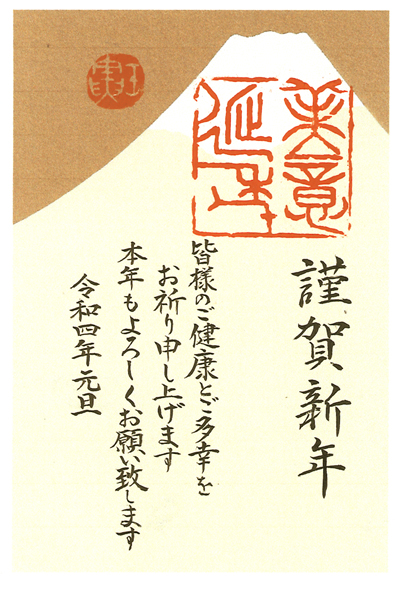 美意
延年
壬寅
謹賀新年
皆様のご健康とご多幸を
お祈り申し上げます
本年もよろしくお願い致します
令和四年元旦